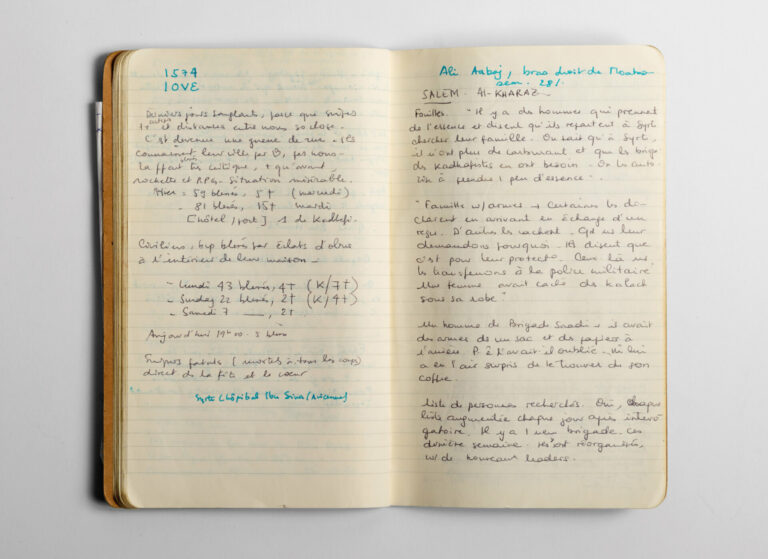 1574
LOVE
Derniers jours sanglants, parce que snipers
et distances entre nous so close.
C'est devenue une guerre de rue. Ils
connaissent leur ville par ♡, pas nous.
très critique, + qu'avant,
rockette et RPG. Situation misérable.
Hier = 59 blessés, 5† (mercredi)
- 81 blessés, 15† mardi
[hôtel / port] 1 de Kadhafi.
Civiliens, bcp blessés par éclats d'obus
à l'intérieur de leur maison -
- Lundi 43 blessés, 4† (K/7†)
- Sunday 22 blessés, 2† (K/4†)
- Samedi 7 ——, 2†
Aujourd'hui 14h00. 3 blessés
Snipers fatals (mortels à tous les coups)
direct de la tête et le cœur
Syrte (hôpital Ibn Sina (Avicenne)
Ali , bras droit de
sem. 28/.
SALEM. Al-KHARAZ
Fouilles. "Il y a des hommes qui prennent
de l'essence et disent qu'ils repartent à Syrte
chercher leur famille. On sait qu'à Syrte,
il n'ont plus de carburant et que les briga
des kadhafistes en ont besoin. On les auto
à prendre 1 peu d'essence".
"Famille w/armes → Certaines les dé-
clarent en arrivant en échange d'un
reçu. D'autres les cachent. Qd ns leur
demandons pourquoi. Ils disent que
c'est pour leur protect°. Ceux là ns
les transférons à la police militaire"
Une femme avait caché des kalach
sous sa robe"
Un homme de Brigade Saadi → il avait
des armes ds un sac et des papiers à
l'arrière. P. ê l'avait il oublié.
a eu l'air surpris de le trouver ds son
coffre.
Liste de personnes recherchés. Oui, chaque
liste augmentée chaque jour après interro
gatoire. Il y a 1 new brigade ces
dernière semaine. réorganisés,
w/de nouveaux leaders.